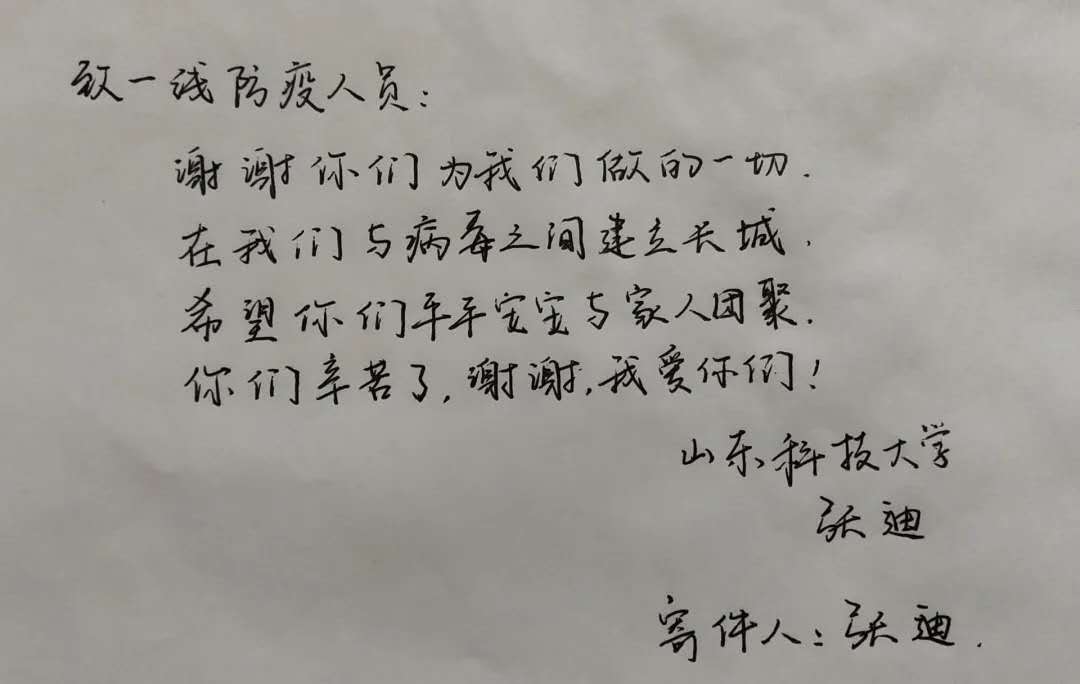 致一线防疫人员：
谢谢你们为我们做的一切.
在我们与病毒之间建立长城.
希望你们平平安安与家人团聚.
你们辛苦了,谢谢,我爱你们!
山东科技大学
张迪
寄件人：张迪.